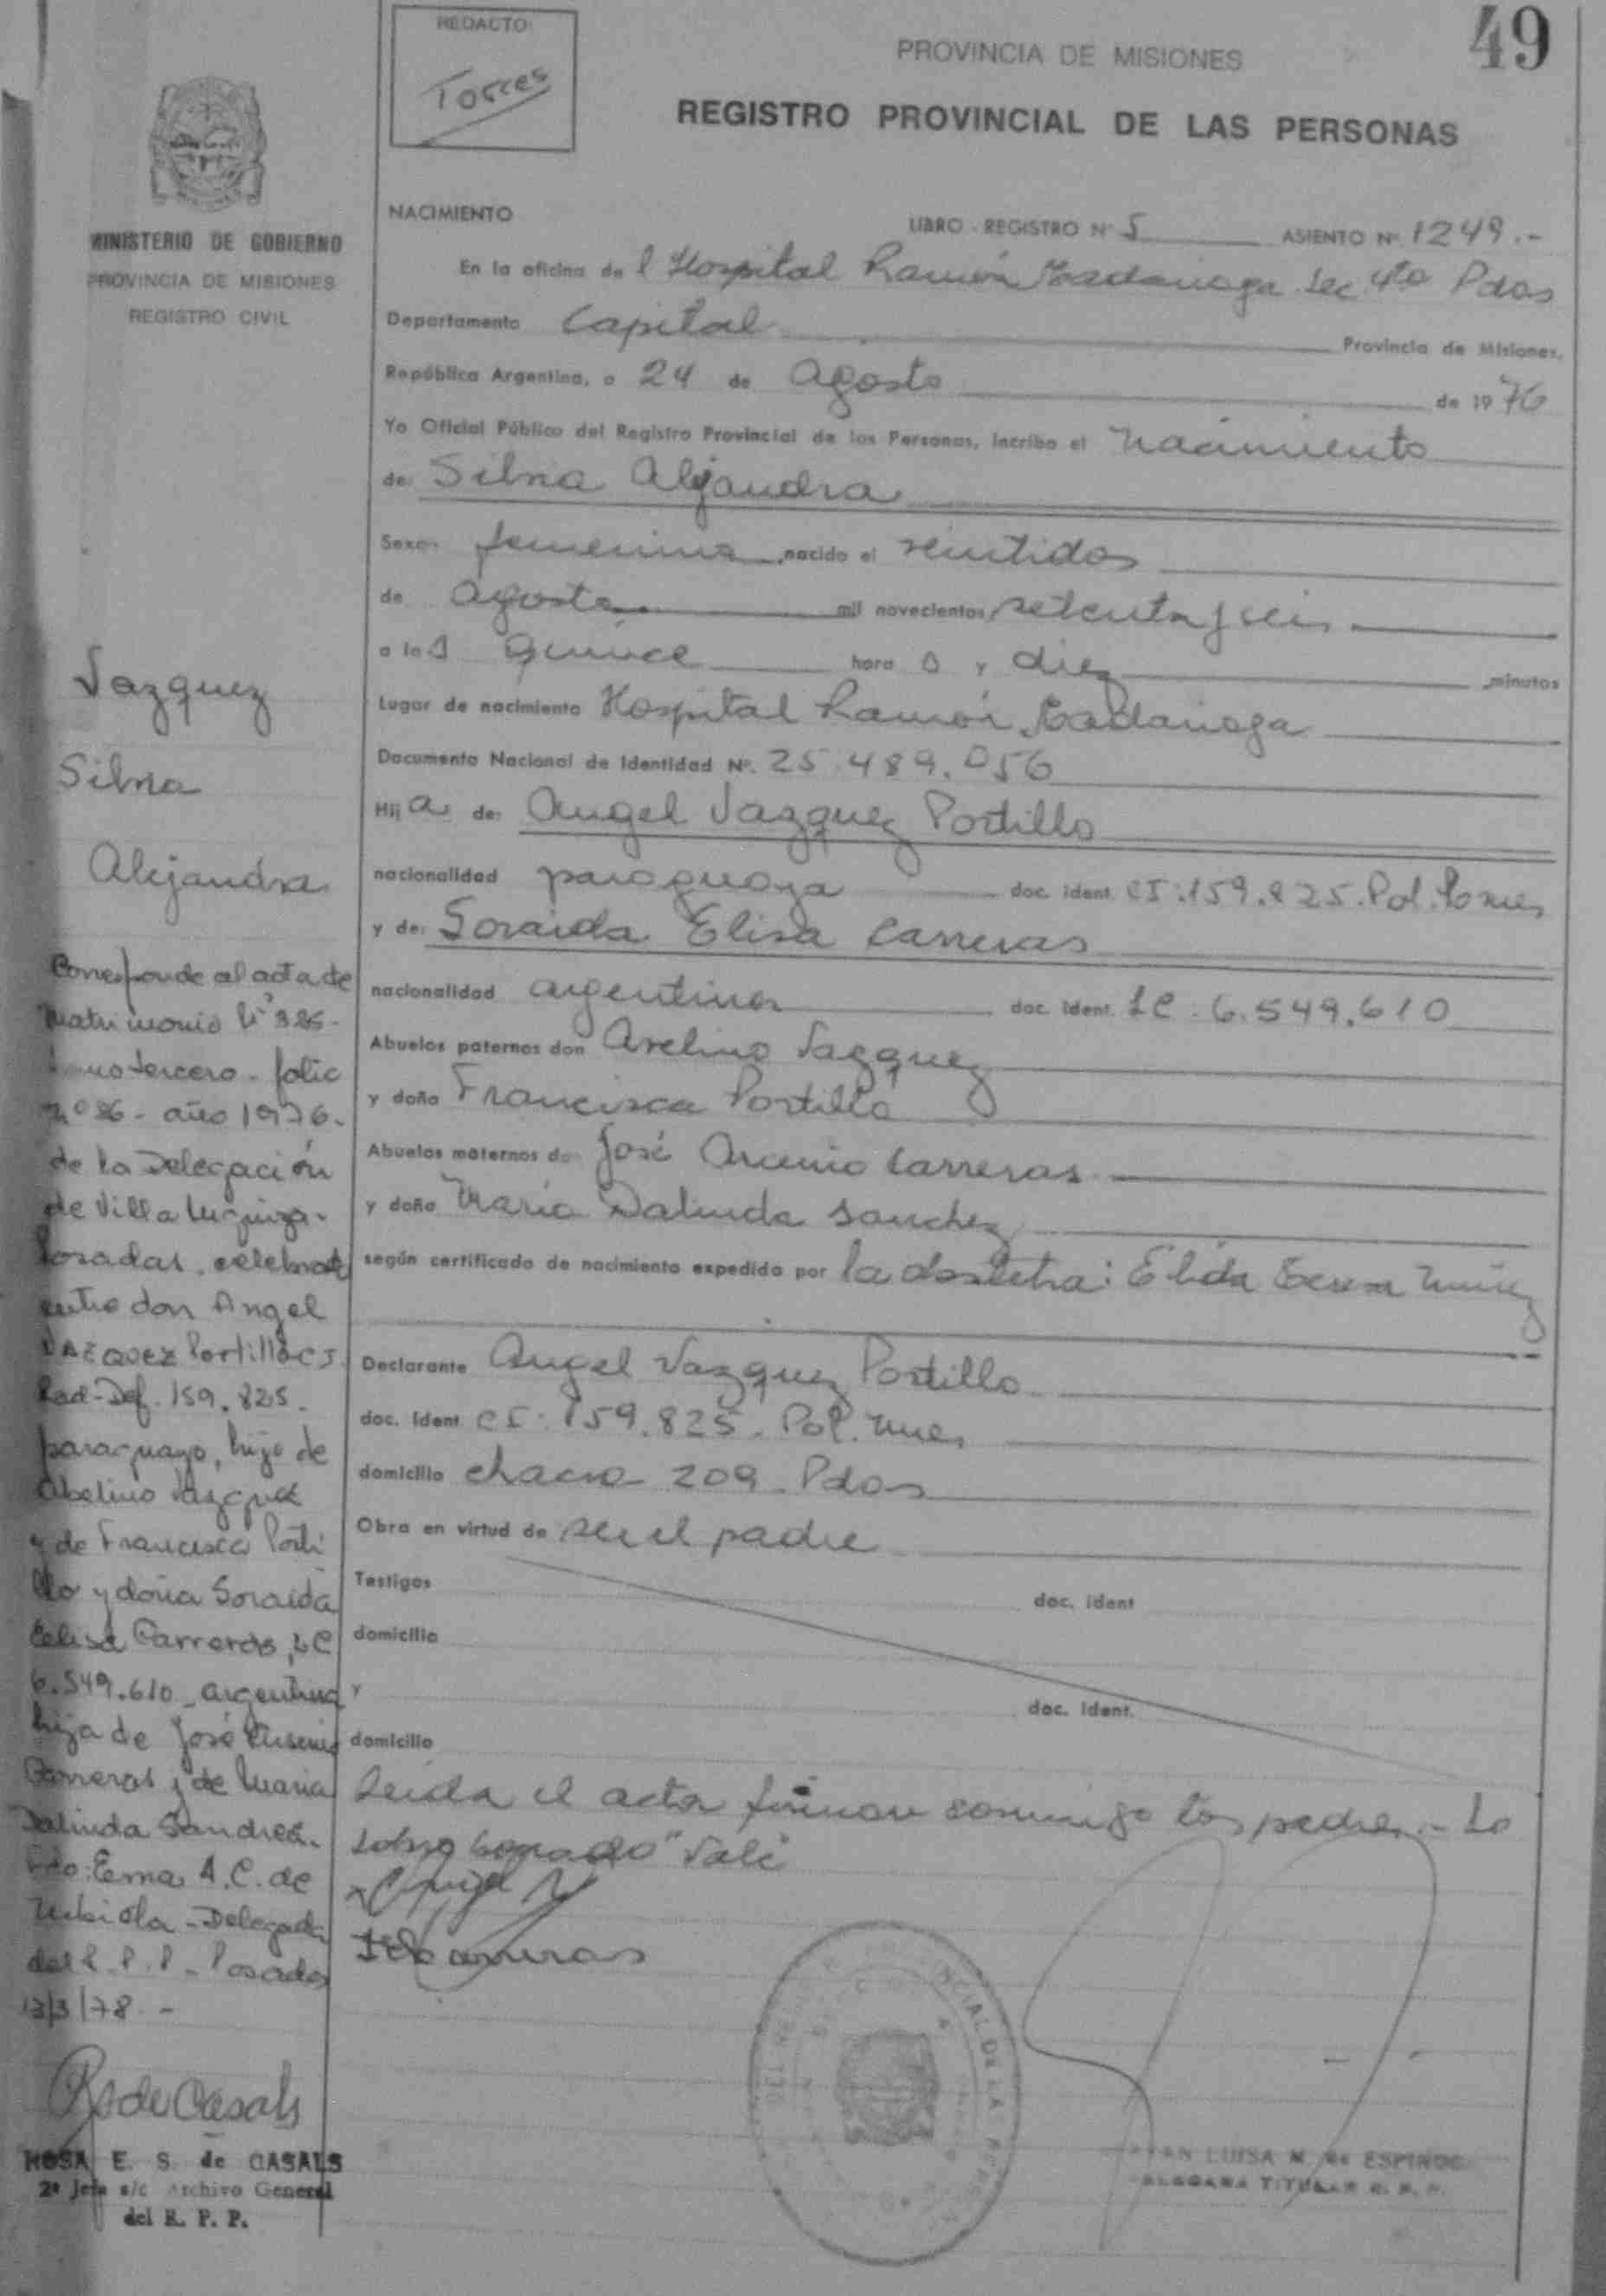 49
REDACTO:
Torres
PROVINCIA DE MISIONES
REGISTRO PROVINCIAL DE LAS PERSONAS
MINISTERIO DE GOBIERNO
PROVINCIA DE MISIONES
REGISTRO CIVIL
NACIMIENTO
LIBRO - REGISTRO Nº 5 ASIENTO Nº 1249.-
En la oficina de l Hospital Ramón Madariaga Sec. 4ta Pdas
Departamento Capital Provincia de Misiones,
República Argentina, a 24 de Agosto de 1976
Yo Oficial Público del Registro Provincial de las Personas, incribo el Nacimiento
de: Silvia Alejandra
Sexo: femenino nacido el veintidos
de agosto mil novecientos setenta y seis
a las quince hora s y diez minutos
Lugar de nacimiento Hospital Ramón Madariaga
Documento Nacional de Identidad Nº. 25.489.056
Hij a de: Angel Vazquez Portillo
nacionalidad paraguaya doc. ident. CI:159.825.Pol.
y de: Soraida Elisa Carreras
nacionalidad argentina doc. ident. LC. 6.549.610
Abuelos paternos don Avelino Vazquez
y doña Francisca Portillo
Abuelos maternos do José Arcenio Carreras
y doña Maria Dalinda Sanchez
según certificado de nacimiento expedido por la obstetra: Elida
Declarante Angel Vazquez Portillo
doc. ident CI: 159.825. Pol. Mnes
domicilio chacra 209 Pdas
Obra en virtud de ser el padre
Testigos doc. ident
domicilio
y doc. ident.
domicilio
Leida el acta firman conmigo los padres.- Lo
sobre borrado "Vale
Carreras
Vazquez
Silvia
Alejandra
Corresponde al acta de
Matrimonio Nº 326-
tomo tercero - folio
nº 86 - año 1976.
de la Delegación
de Villa Urquiza-
Posadas, celebrado
entre don Angel
VAZQUEZ Portillo CI.
Rad-Def. 159.825.
paraguayo, hijo de
Abelino Vazquez
y de Francisca Porti
llo y doña Soraida
Elisa Carreras, LC
6.549.610 - argentina
hija de José
Carreras y de Maria
Dalinda
Fdo: Ema A.C. de
- Delegada
del R.P.P - Posadas
13/3/78.-
R de Casals
ROSA E. S. de CASALS
2º Jefe a/c Archivo General
del R. P. P.
LUISA M. de ESPINOS
TITULAR R. P. P.